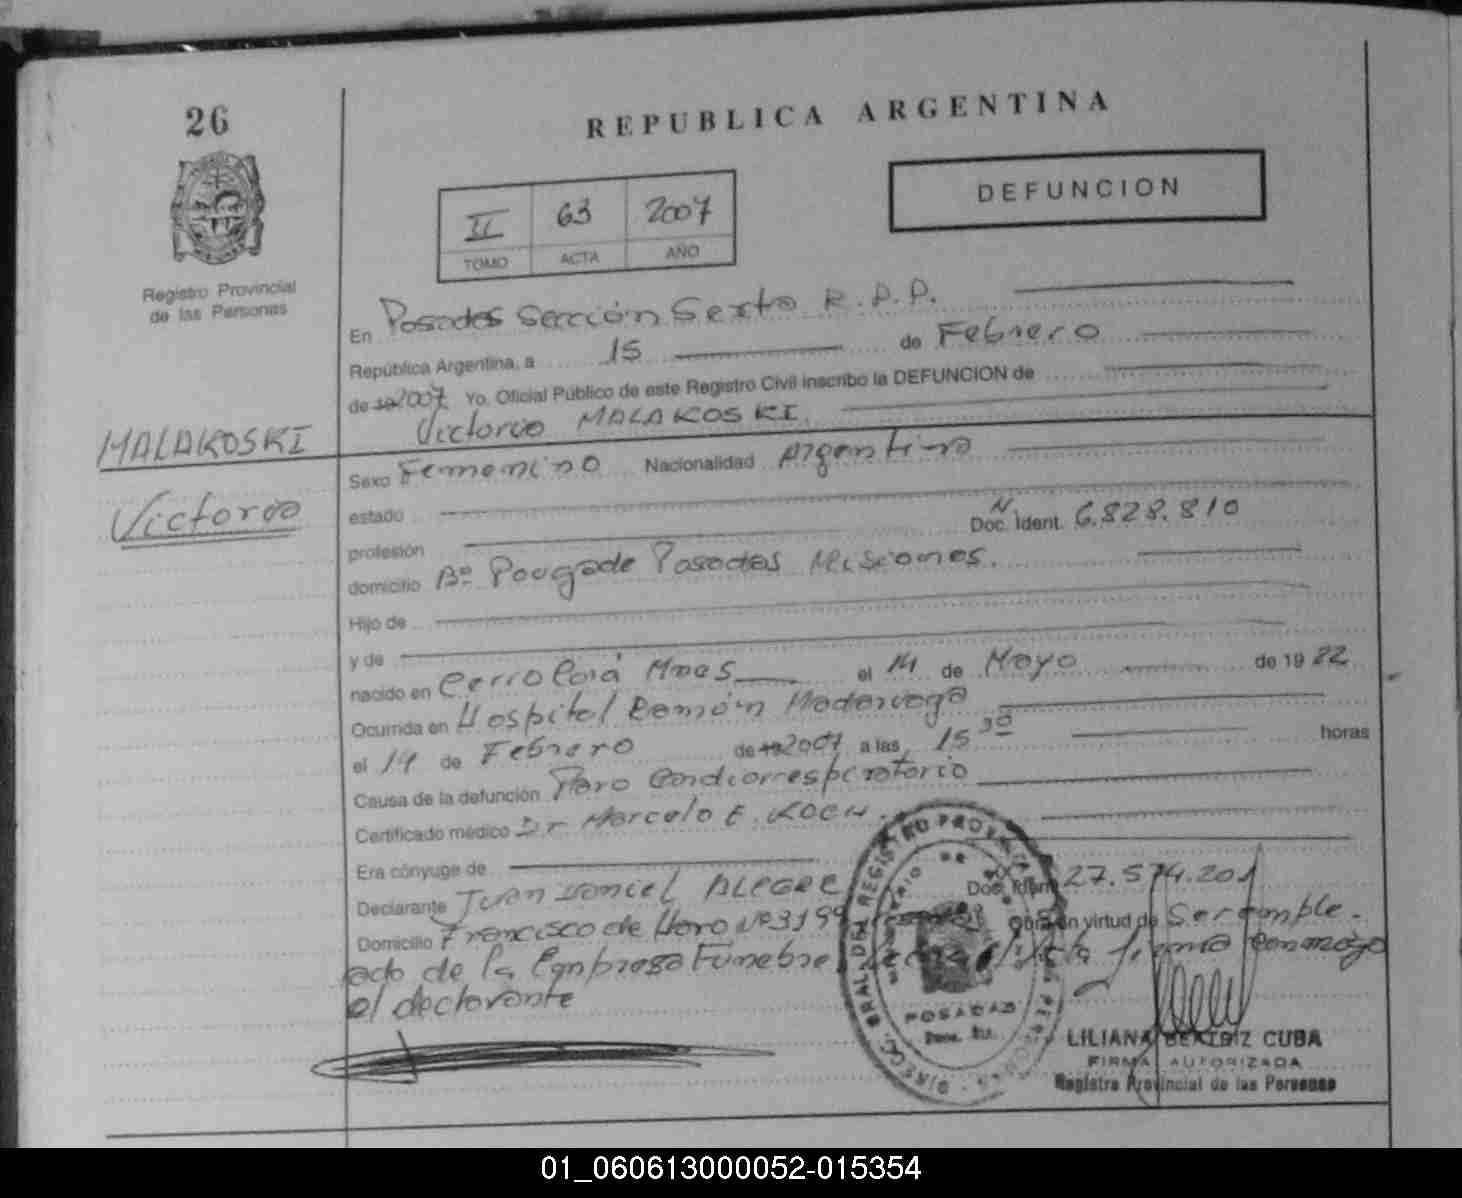 26
REPUBLICA ARGENTINA
DEFUNCION
II 63 2007
TOMO ACTA AÑO
Registro Provincial
de las Personas
En Posadas Sección Sexta R.P.P.
República Argentina, a 15 de Febrero
de 19 2007 Yo, Oficial Público de este Registro Civil inscribo la DEFUNCION de
Victoria MALAKOSKI.
MALAKOSKI
Victoria
Sexo Femenino Nacionalidad Argentina
estado
profesión N Doc. Ident. 6.828.810
domicilio Bº Pougade Posadas Misiones.
Hijo de
y de
nacido en Cerro Corá Mnes el 14 de Mayo de 19 22
Ocurrida en Hospital Ramón Madariaga
el 14 de Febrero de 19 2007 a las 15 30 horas
Causa de la defunción Paro Cardiorrespiratorio
Certificado médico Dr Marcelo E. KOCH.
Era cónyuge de
Declarante Juan Daniel ALEGRE Doc. Ident. 27.574.201
Domicilio Francisco de Haro Nº 3199 Obra en virtud de Ser emple-
ado de la Empresa Fúnebre firma conmigo
el declarante
POSADAS
LILIANA BEATRIZ CUBA
FIRMA AUTORIZADA
Registro Provincial de las Personas
01_060613000052-015354